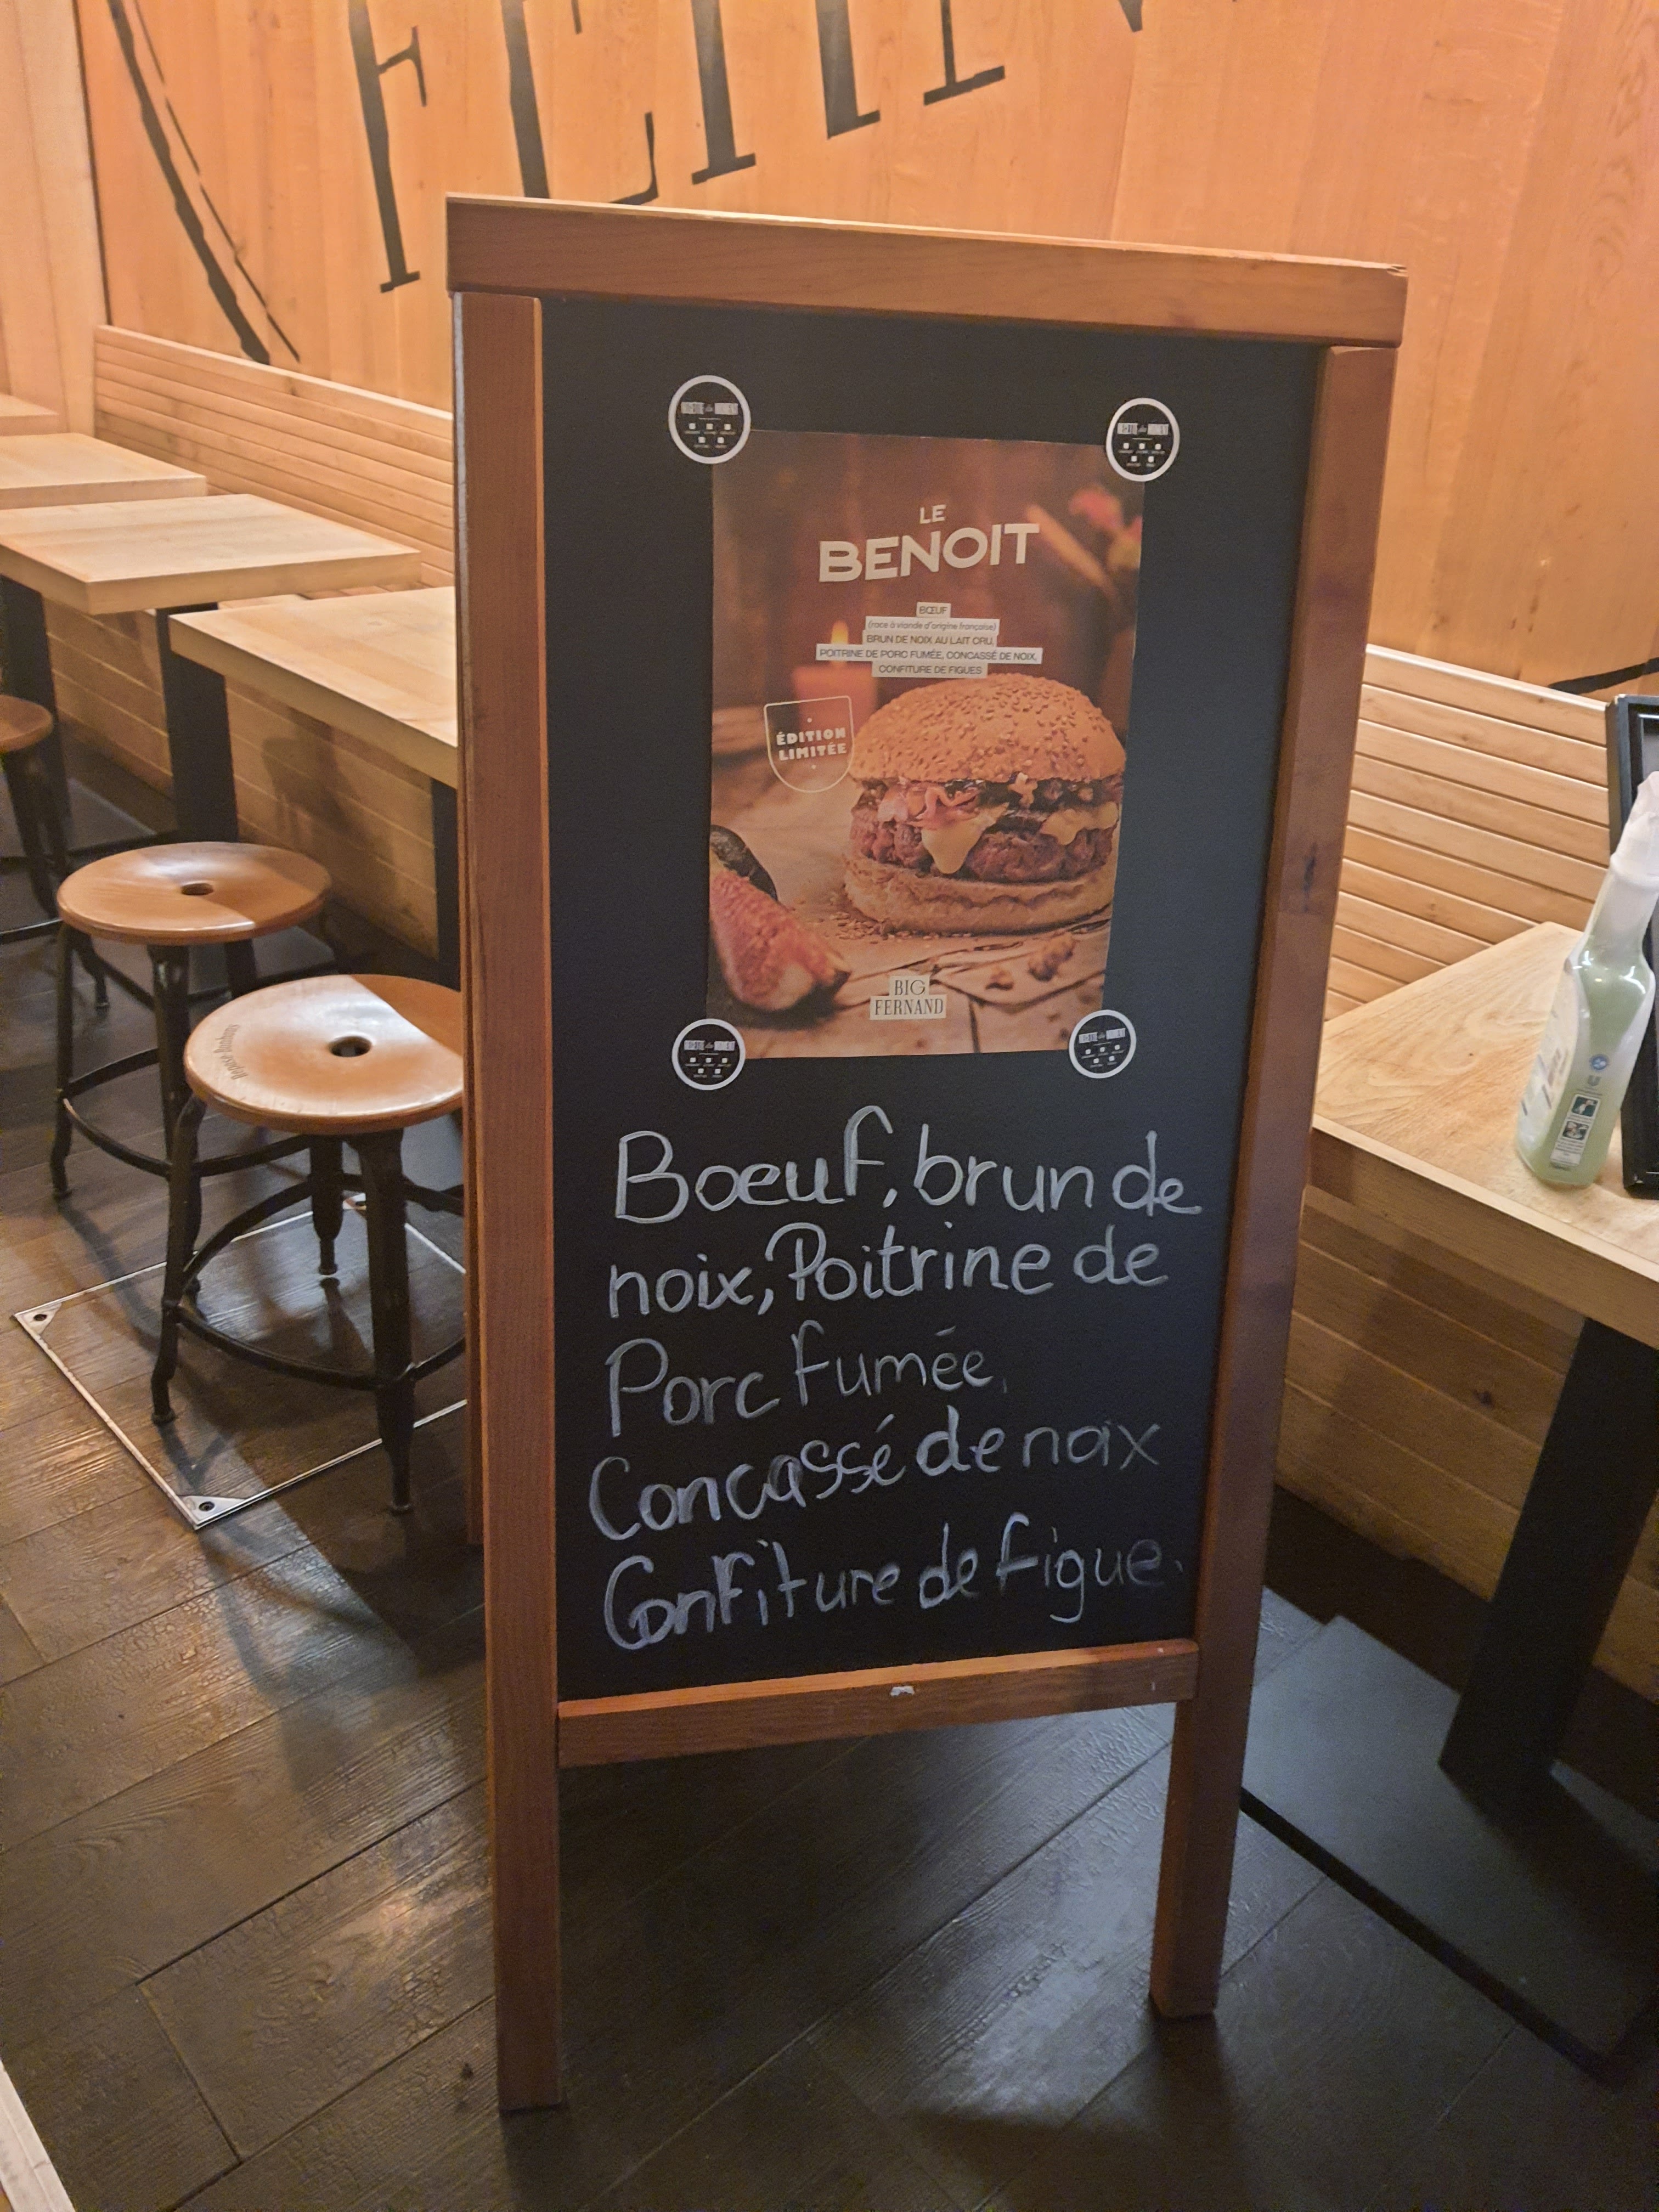 LE
BENOIT
BŒUF
(race à viande d'origine française)
BRUN DE NOIX AU LAIT CRU,
POITRINE DE PORC FUMÉE, CONCASSÉ DE NOIX,
CONFITURE DE FIGUES
ÉDITION
LIMITÉE
BIG
FERNAND
Boeuf, brun de
noix, Poitrine de
Porc fumée,
Concassé de noix
Confiture de figue.